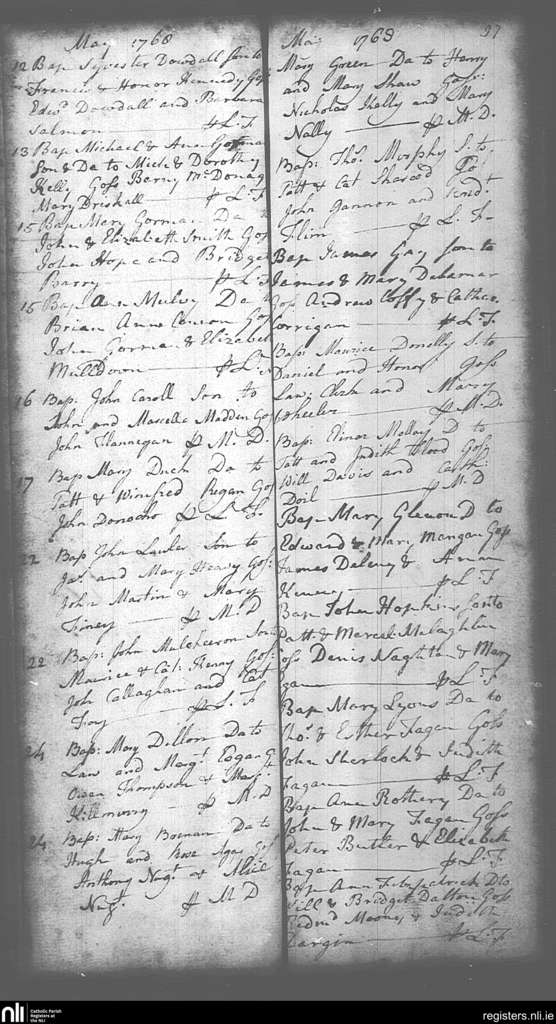 May 1768
12 Bap Sylvester Dowdall son to
Francis & Honor Hennedy Gos
Edwd Dowdall and Barbara
Salmon — L: F
13 Bap Michael & Ann
Son & Da to Mich & Dorothy
Kelly Goss Barny McDonag
Mary Driskall — L F
15 Bap Mary Gorman Da to
John & Elizabeth Smith Gos
John Hope and Bridget
Barry — L F
15 Bap Ann Mulvy Da to
Brian Ann Gos
John Gorman & Elizabeth
Muldown — L F
16 Bap: John Caroll Son to
John and Marcella Madden Gos
John Flannegan M. D.
17 Bap Mary Duch Da to
Patt & Winifred Regan Gos
John L. F.
22 Bap John Lawler Son to
Jas and Mary Heavy Gos:
John Martin & Mary
Finey — M. D
22 Bap: John Mulcheron Son
Maurice & Cat: Kenny Gos:
John Callaghan and Cat
Foy — L. F
24 Bap: Mary Dillon Da to
Law and Margt Eogan G
Owen Thompson & Margt
Kilmurry — M. D
24 Bap: Mary Da to
Hugh and Rose Gos
Anthony Nugt &
Nugt M D
May 1768 37
Mary Green Da to Harry
and Mary Shaw Goss:
Nicholas Kelly and Mary
Nally — M D
Bap: Tho. Murphy S. to
Patt & Cat Go
John Gannon and
Flin — L. F
Bap James Gay son to
James & Mary Delamar
Gos Andrew Coffy & Cathe
Corrigan — L. F.
Bap: Maurice Donolly S. to
Daniel and Honor Goss
Law: and Mary
Wheeler — M. D.
Bap: Elinor Mallay D to
Patt and Judith Flood Gos:
Will Davis and Cath:
Doil — M. D
Bap Mary D to
Edward & Mary Mangan Goss
James Delany & Ann
— L: F
Bap John Hopkins son to
Patt & Marcel Melaghlin
Goss Denis Naghte & Mary
Egan — L: F
Bap Mary Lyons Da to
Tho: & Esther Fagan Goss
John Sherlock & Judith
Fagan — L. F
Bap Ann Rothery Da to
John & Mary Fagan Goss
Peter Butler & Elizabeth
Fagan — L. F
Bap Ann Fitzpatrick D to
Will & Bridget Dalton Goss
Redmd Mooney & Judith
Dargin — L. F.
nli Catholic Parish
Registers at
the NLI
registers.nli.ie